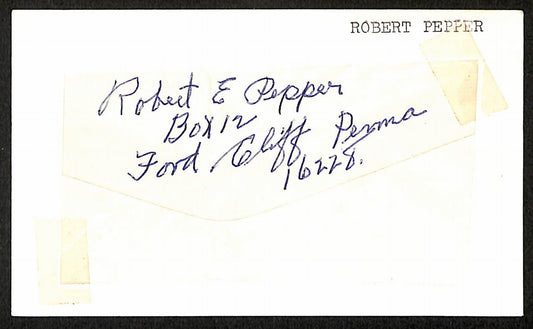 ROBERT PEPPER
Robert E Pepper
Box 12
Ford Cliff Penna
16228.